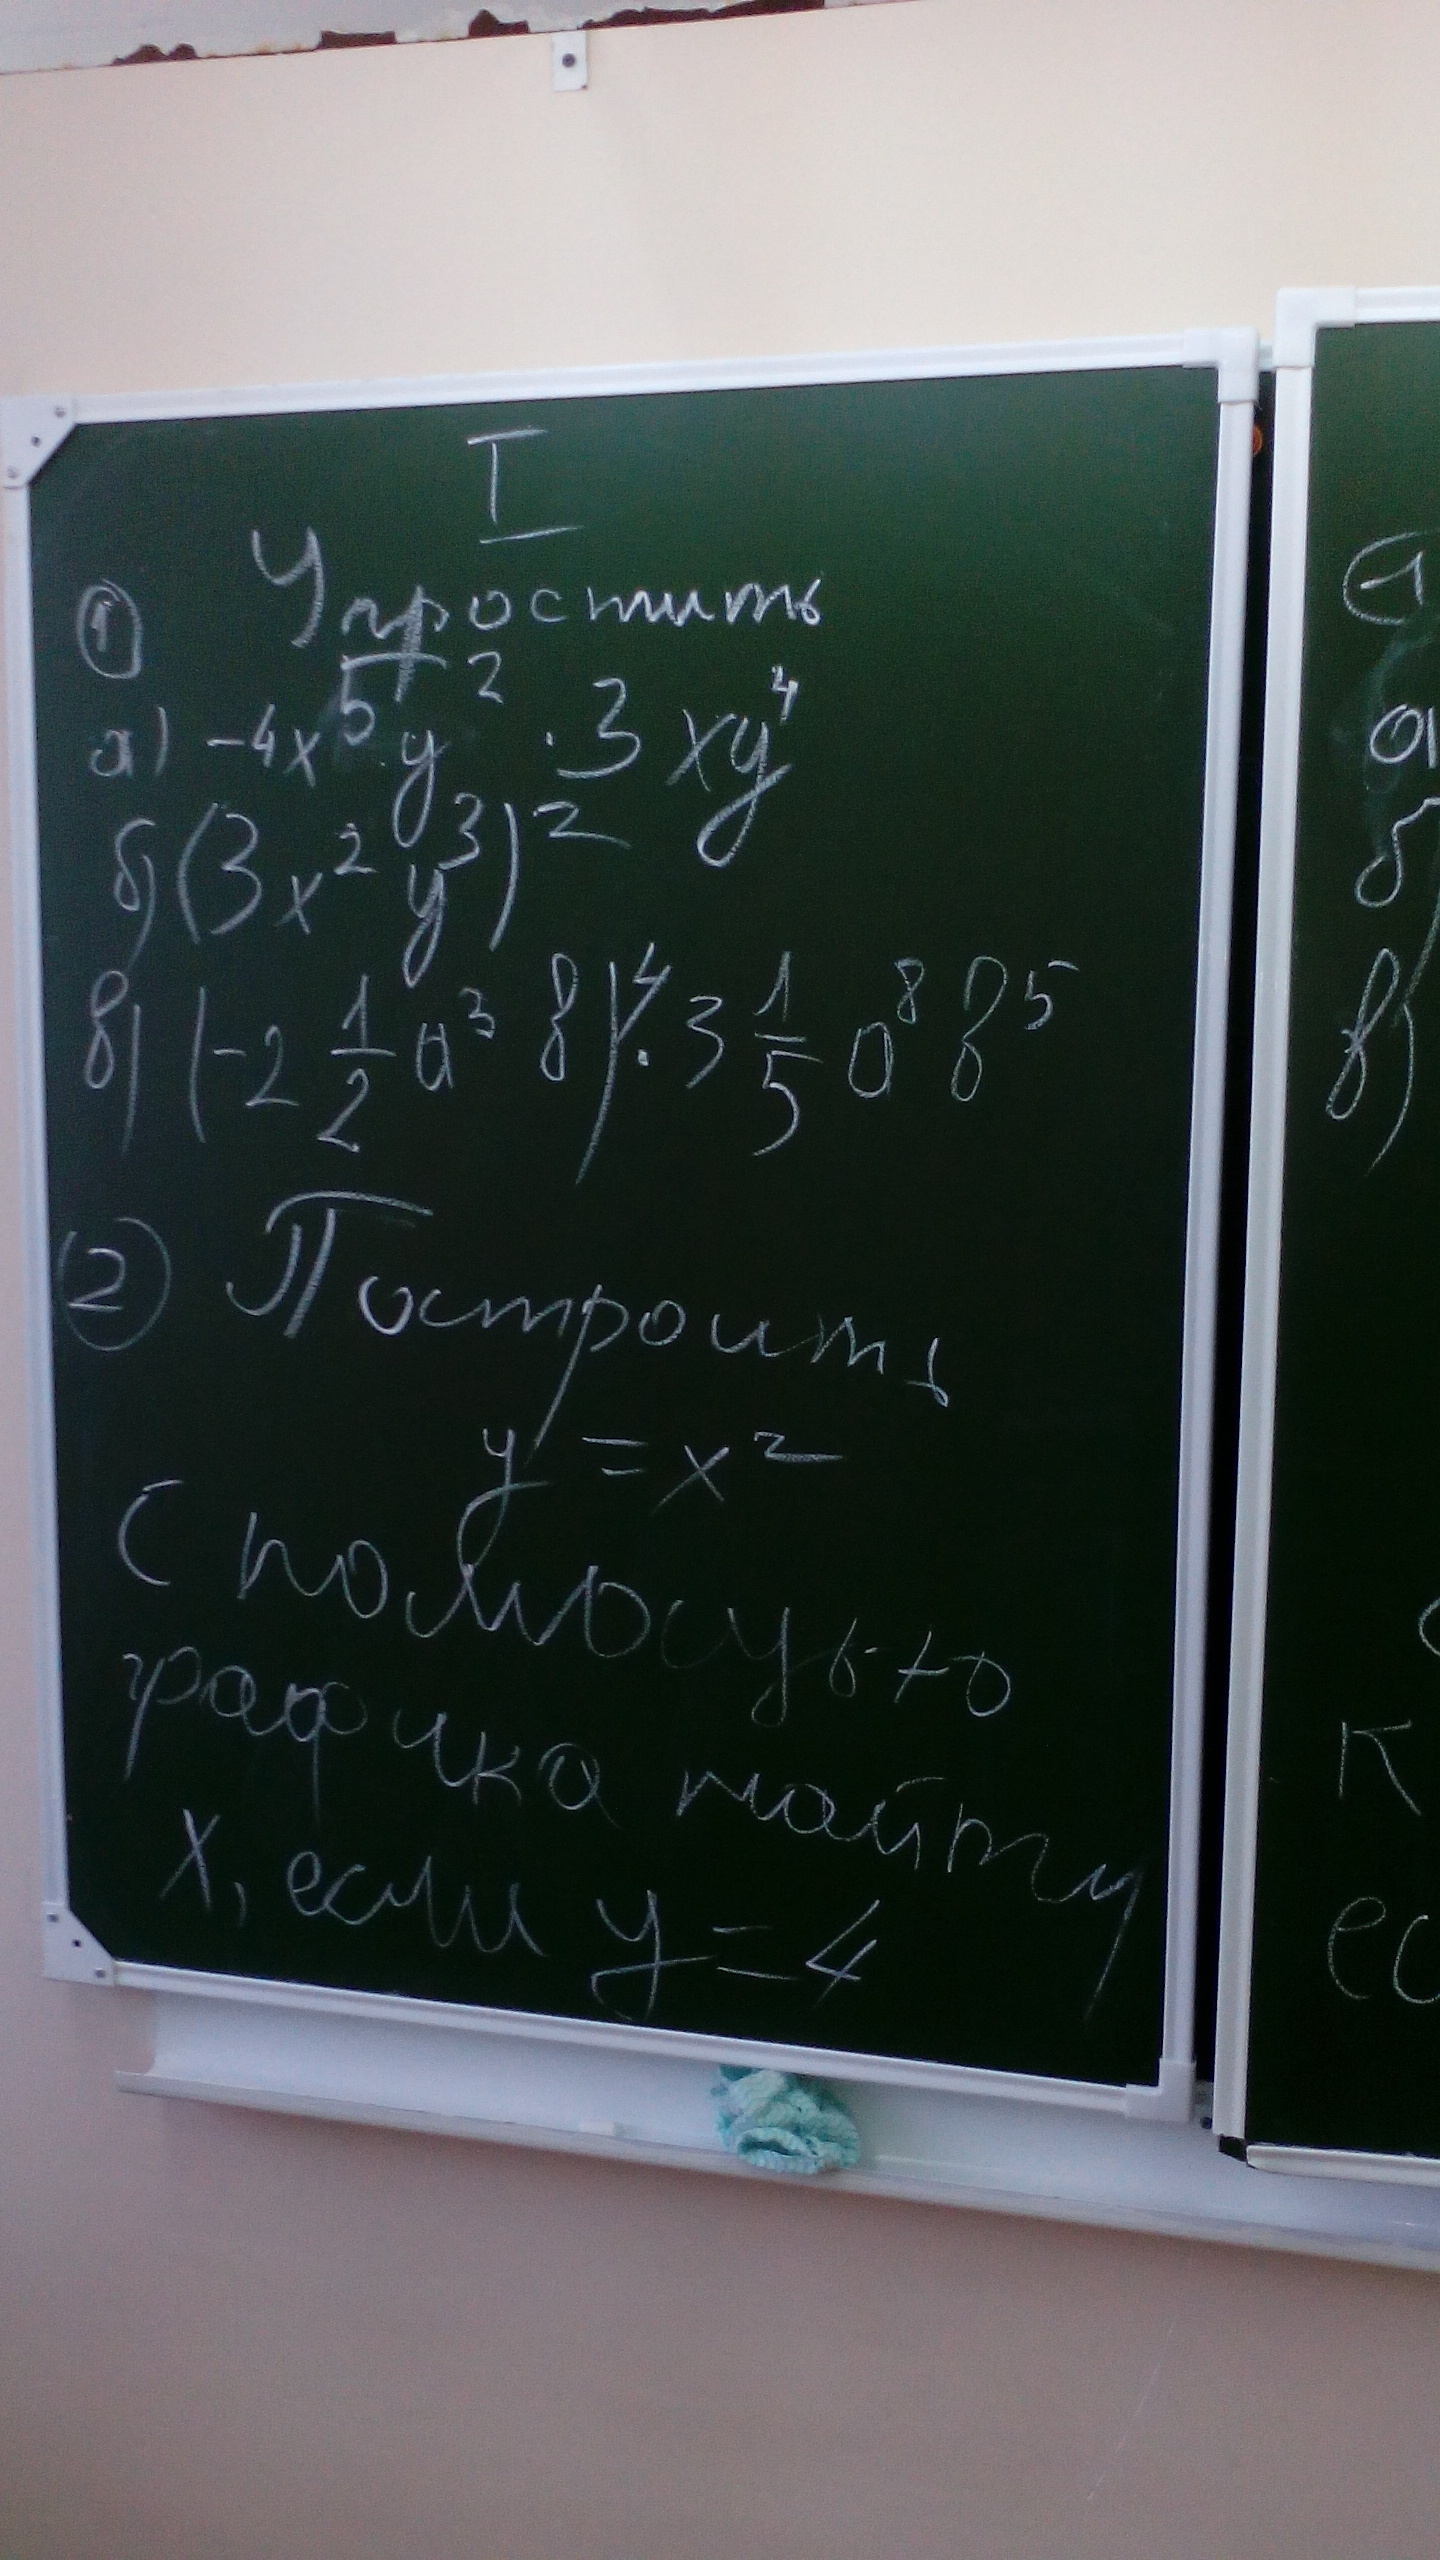 I
① Упростить
а) -4x⁵y² · 3xy⁴
б) (3x²y³)²
в) (-2 1/2 a³ в)⁴ · 3 1/5 a⁸ в⁵
② Построить
y = x²
С помощью
графика найти
x, если y = 4
1
а
б)
в)
к
ес